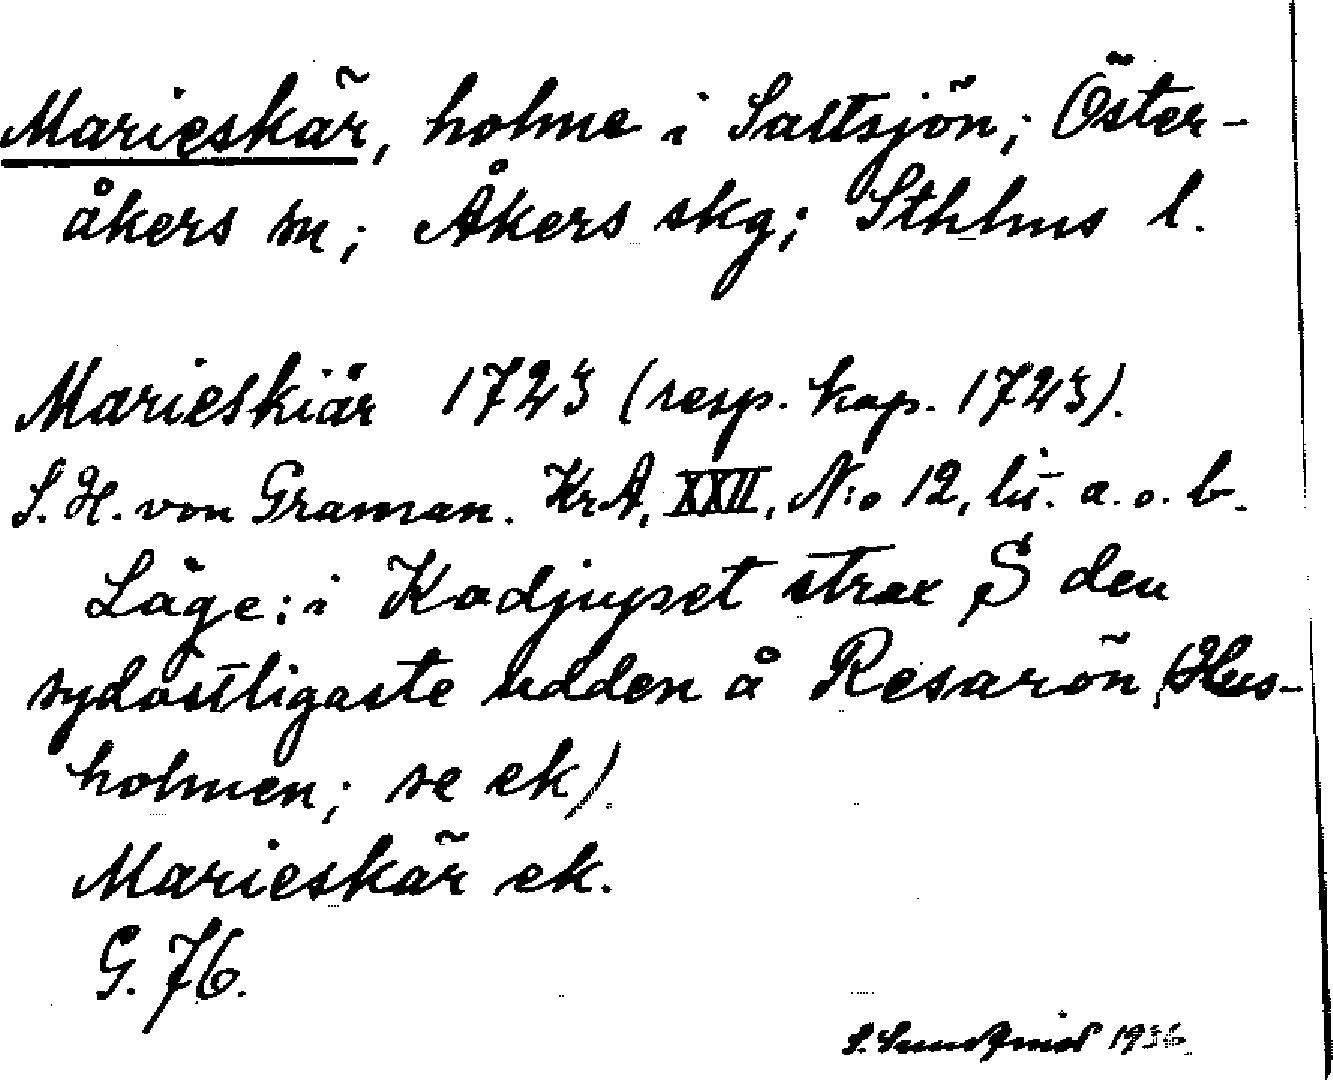 Marieskär, holme i Saltsjön; Öster-
åkers sn; Åkers skg; Sthlms l.
Marieskiär 1723 (resp. kop. 1723).
S. H. von Graman. KrA, XXII, N:o 12, lit. a. o. b.
Läge: i Kodjupet strax S den
sydostligaste udden å Resarön (Hus-
holmen; se ek).
Marieskär ek.
G. 76.
1936